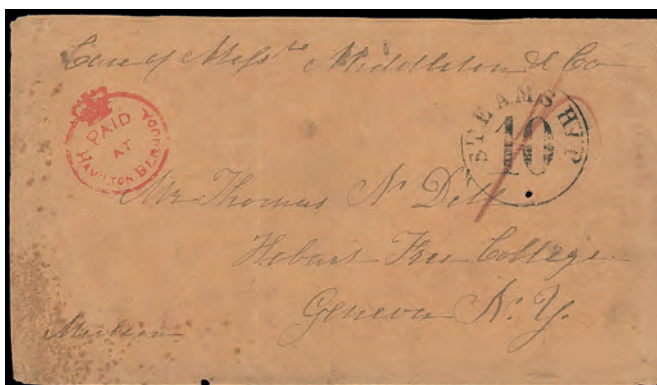 Care of Messrs Middleton & Co
PAID
AT
HAMILTON. BERMUDA
STEAMSHIP
10
Mr Thomas N. Dill
Hobart Free College
Geneva N. Y.